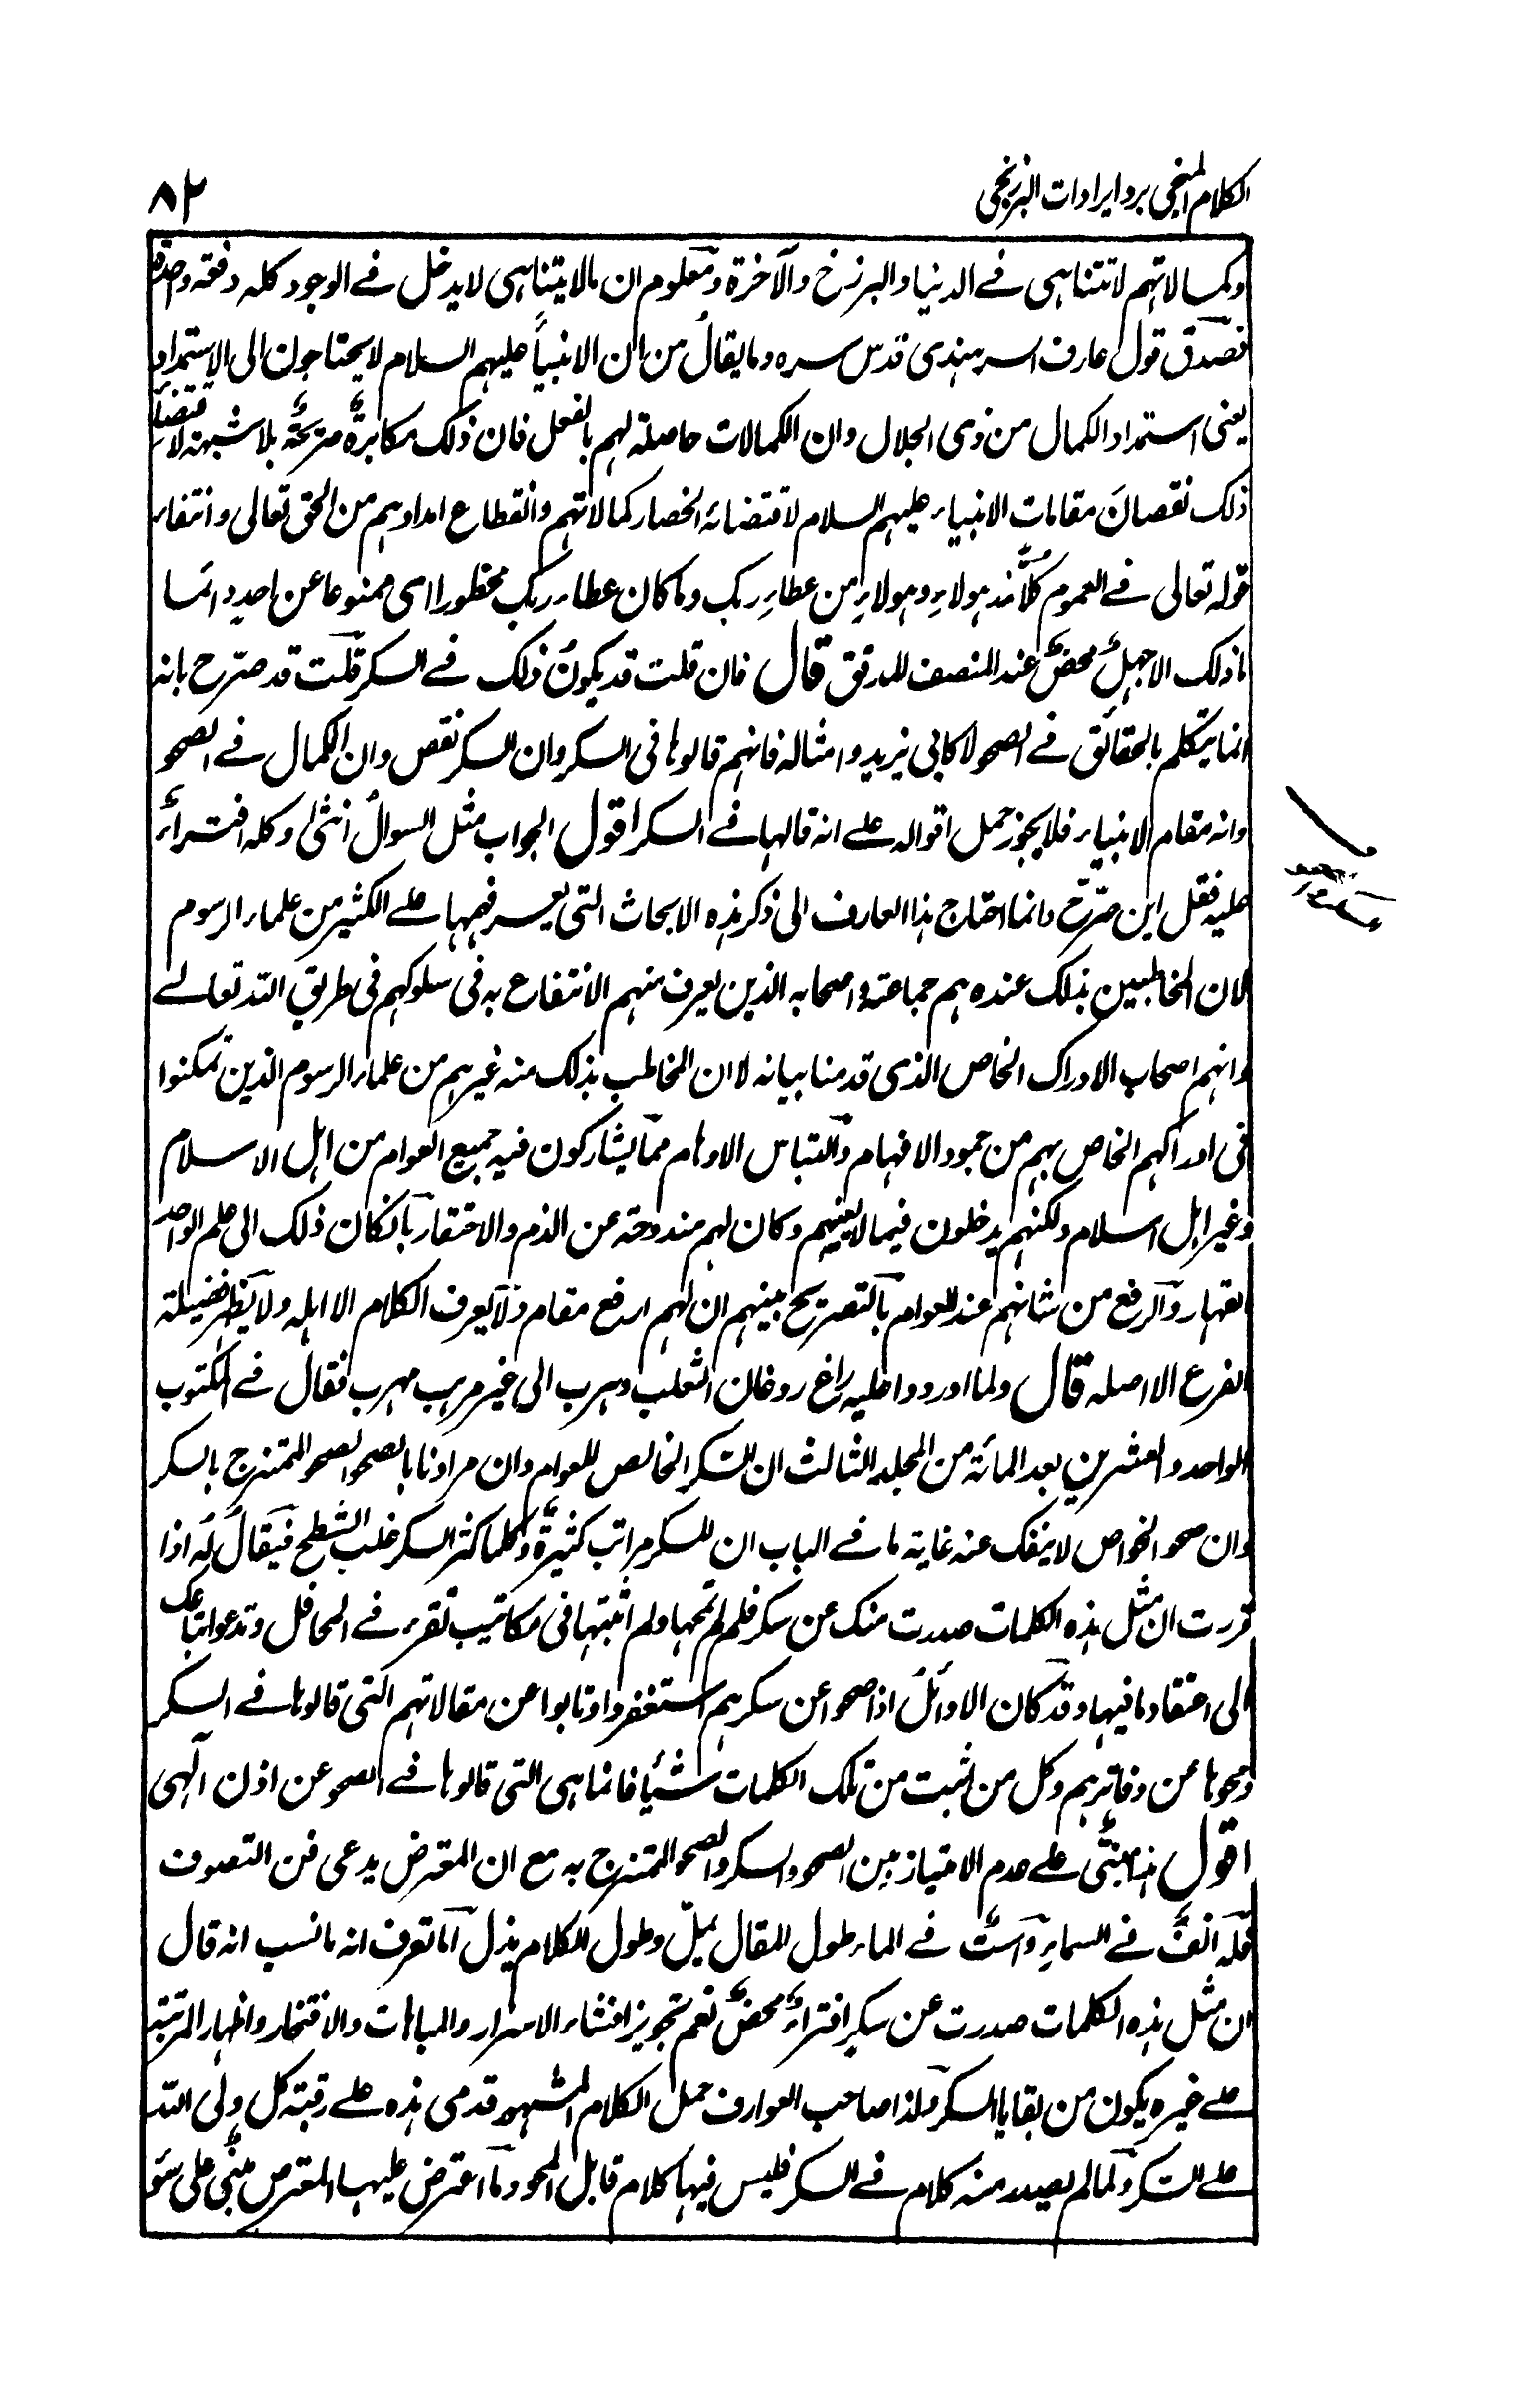 الكلام المنجى برد ايرادات البرزنجى
٨٢
وكمالاتهم لا تتناهى فے الدنيا والبرزخ والآخرة ومعلوم ان مالا يتناهى لا يدخل فے الوجود كله دفعة واحدة
فصدق قول عارف السرہندى قدس سره وما يقال من ان الانبياء عليهم السلام لا يحتاجون الى الاستمداد
يعنى استمداد الكمال من ذى الجلال وان الكمالات حاصلة لهم بالفعل فان ذلك مكابرة صريحة بلا شبهة لاقتضاء
ذلك نقصان مقامات الانبياء عليهم السلام لاقتضائه انحصار كمالاتهم وانقطاع امدادهم من الحق تعالى وانتفاء
قوله تعالى فے العموم كلا نمد هولاء وهولاء من عطاء ربك وما كان عطاء ربك محظورا اى ممنوعا عن احد وانما
ما ذلك الا جهل محض عند المنصف المدقق قال فان قلت قد يكون ذلك فے السكر قلت قد صرح بانه
انما يتكلم بالحقائق فے الصحو لا كابى يزيد وامثاله فانهم قالوها فى السكر وان السكر نقص وان الكمال فے الصحو
وانه مقام الانبياء فلا يجوز حمل اقواله علے انه قالها فے السكر اقول الجواب مثل السوال انثى وكله افتراء
عليه فقل اين صرح وانما احتاج هذا العارف الى ذكر هذه الابحاث التى يعسر فهمها علے الكثير من علماء الرسوم
لان المخاطبين بذلك عنده هم جماعته واصحابه الذين يعرف منهم الانتفاع به فى سلوكهم فى طريق الله تعالے
وانهم اصحاب الادراك الخاص الذى قدمنا بيانه لا ان المخاطب بذلك منه غيرهم من علماء الرسوم الذين تمكنوا
فى ادراكهم الخاص بهم من جمود الافهام والتباس الاوهام مما يشاركون فيه جميع العوام من اهل الاسلام
وغير اهل اسلام ولكنهم يدخلون فيما لا يعنيهم وكان لهم مندوحة عن الذم والاحتقار بالنكان ذلك الى علم الواحد
القهار والرفع من شانهم عند العوام بالتصريح بينهم ان لهم ارفع مقام ولا يعرف الكلام الا اهله ولا يظهر فضيلة
الفرع الا اصله قال ولما اوردوا عليه راغ روغان الثعلب وهرب الى غير مهرب مهرب فقال فے المكتوب
الواحد والعشرين بعد المائة من المجلد الثالث ان السكر الخالص للعوام وان مرادنا بالصحو الصحو الممتزج بالسكر
وان صحو الخواص لا ينفك عنه غاية ما فے الباب ان للسكر مراتب كثيرة وكلما كثر السكر غلب الشطح فيقال له اذا
قررت ان مثل هذه الكلمات صدرت منك عن سكر فلم لم تمحها ولم اثبتها فى مكاتيب تقرء فے المحافل وتدعو اتباعك
الى اعتقاد ما فيها وقد كان الاوائل اذا صحوا عن سكرهم استغفروا وتابوا عن مقالاتهم التى قالوها فے السكر
ومحوها عن دفاترهم وكل من اثبت من تلك الكلمات شيأ فانما هى التى قالوها فے الصحو عن اذن الٰهى
اقول هذا مبنى علے عدم الامتياز بين الصحو والسكر والصحو الممتزج به مع ان المعترض يدعى فن التصوف
فله انف فے السماء واست فے الماء طول المقال يمل وطول الكلام يذل اما تعرف انه ما نسب انه قال
ان مثل هذه الكلمات صدرت عن سكر افتراء محض نعم تجويز افشاء الاسرار والمباهات والافتخار واظهار المرتبة
علے غيره يكون من بقايا السكر ولذا صاحب العوارف حمل الكلام المشهور قدمى هذه علے رقبة كل ولى الله
علے السكر ولما لم يصدر منه كلام فے السكر فليس فيها كلام قابل المحو وما اعترض عليها المعترض مبنى على سوء